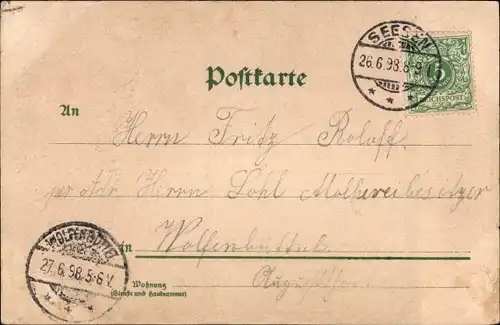 SEESEN
26.6.98.8-9
5
REICHSPOST
Postkarte
An Herrn Fritz Roloff
per Adr Herrn Lohl Molkereibesitzer
in Wolfenbüttel
WOLFENBÜTTEL
27.6.98.5-6 V.
Wohnung
(Straße und Hausnummer)